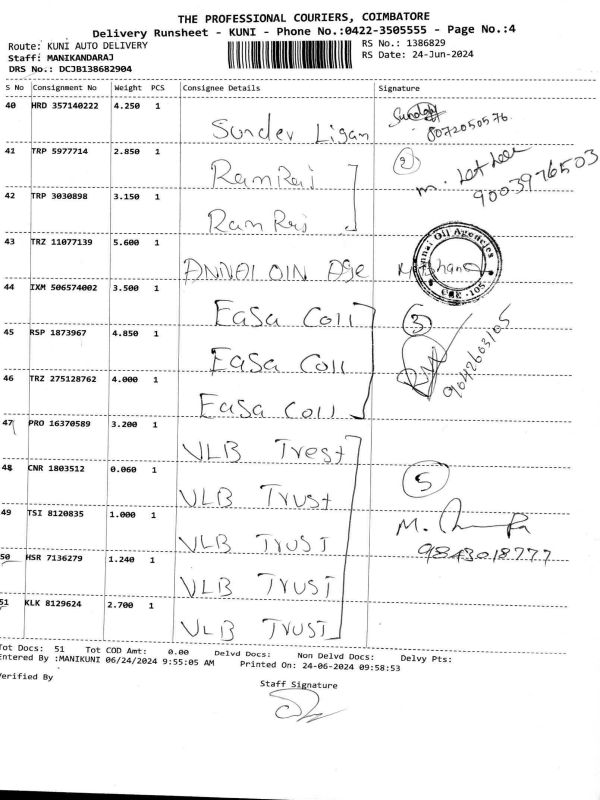 THE PROFESSIONAL COURIERS, COIMBATORE
Delivery Runsheet - KUNI - Phone No.:0422-3505555 - Page No.:4
Route: KUNI AUTO DELIVERY
RS No.: 1386829
Staff: MANIKANDARAJ
RS Date: 24-Jun-2024
DRS No.: DCJB138682904
S No Consignment No Weight PCS Consignee Details Signature
40 HRD 357140222 4.250 1 Sundev Ligan
8072050576
41 TRP 5977714 2.850 1 RamRaj 2
9003976503
42 TRP 3030898 3.150 1 RamRaj
43 TRZ 11077139 5.600 1 ANNAI OIN Age
Annai Oil Agencies
CBE - 105
44 IXM 506574002 3.500 1 EaSa Coll 3
45 RSP 1873967 4.850 1 EaSa Coll
9042603105
46 TRZ 275128762 4.000 1 EaSa Coll
47 PRO 16370589 3.200 1 VLB Trest
48 CNR 1803512 0.060 1 VLB Trust 5
49 TSI 8120835 1.000 1 VLB TRUST M.
9843018777
50 HSR 7136279 1.240 1 VLB TRUST
51 KLK 8129624 2.700 1 VLB TRUST
Tot Docs: 51 Tot COD Amt: 0.00 Delvd Docs: Non Delvd Docs: Delvy Pts:
Entered By :MANIKUNI 06/24/2024 9:55:05 AM Printed On: 24-06-2024 09:58:53
Verified By
Staff Signature